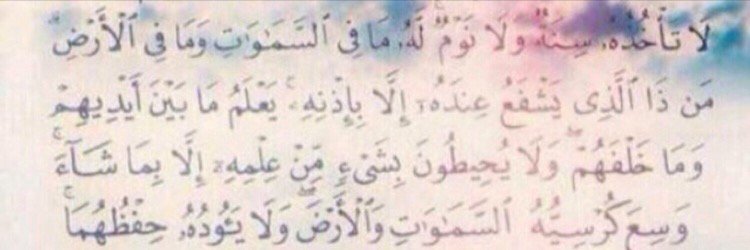 لَا تَأْخُذُهُۥ سِنَةٌ وَلَا نَوْمٌ ۚ لَّهُۥ مَا فِى ٱلسَّمَـٰوَٰتِ وَمَا فِى ٱلْأَرْضِ ۗ
مَن ذَا ٱلَّذِى يَشْفَعُ عِندَهُۥٓ إِلَّا بِإِذْنِهِۦ ۚ يَعْلَمُ مَا بَيْنَ أَيْدِيهِمْ
وَمَا خَلْفَهُمْ ۖ وَلَا يُحِيطُونَ بِشَىْءٍ مِّنْ عِلْمِهِۦٓ إِلَّا بِمَا شَآءَ ۚ
وَسِعَ كُرْسِيُّهُ ٱلسَّمَـٰوَٰتِ وَٱلْأَرْضَ ۖ وَلَا يَـُٔودُهُۥ حِفْظُهُمَا ۚ